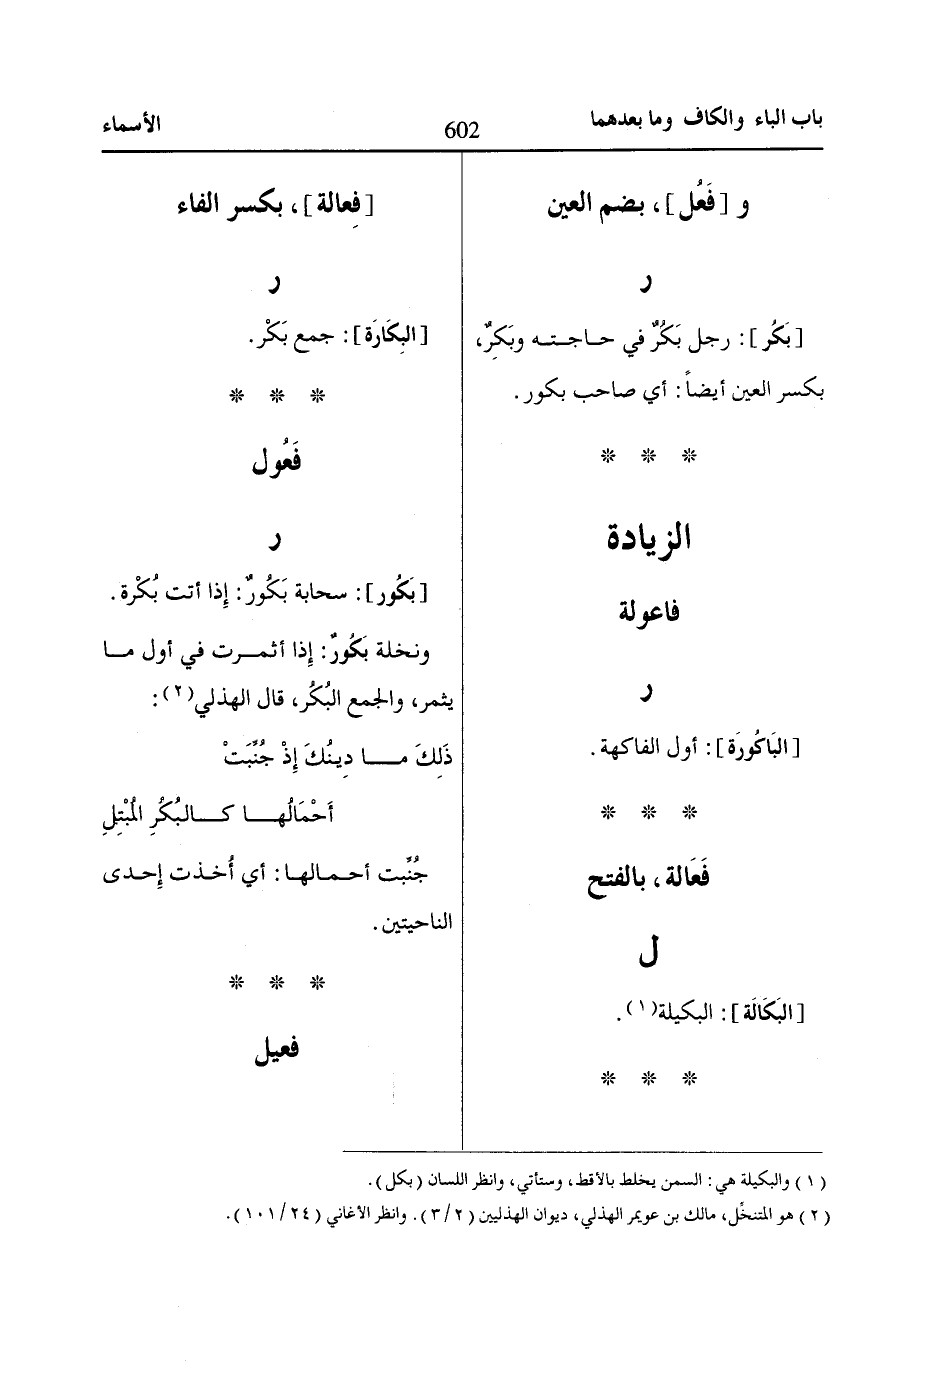 باب الباء والكاف وما بعدهما
602
الأسماء
و [فَعُل]، بضم العين
ر
[بَكُر]: رجل بَكُرٌ في حاجتـه وبَكِرٌ،
بكسر العين أيضاً: أي صاحب بكور.
* * *
الزيادة
فاعولة
ر
[البَاكُورَة]: أول الفاكهة.
* * *
فَعَالة، بالفتح
ل
[البَكَالَة]: البكيلة(١).
* * *
[فِعالة]، بكسر الفاء
ر
[البِكَارَة]: جمع بَكْر.
* * *
فَعُول
ر
[بَكُور]: سحابة بَكُورٌ: إذا أتت بُكْرة.
ونخلة بَكُورٌ: إذا أثمـرت في أول مـا
يثمر، والجمع البُكُر، قال الهذلي(٢):
ذَلِكَ مـــا دِينُكَ إِذْ جُنِّبَتْ
أَحْمَالُهــا كــالبُكُرِ المُبْتِلِ
جُنِّبت أحـمـالهـا: أي أُخـذت إحـدى
الناحيتين.
* * *
فعيل
(١) والبكيلة هي: السمن يخلط بالأقط، وستأتي، وانظر اللسان (بكل).
(٢) هو المتنخّل، مالك بن عويمر الهذلي، ديوان الهذليين (٣/٢). وانظر الأغاني (١٠١/٢٤).